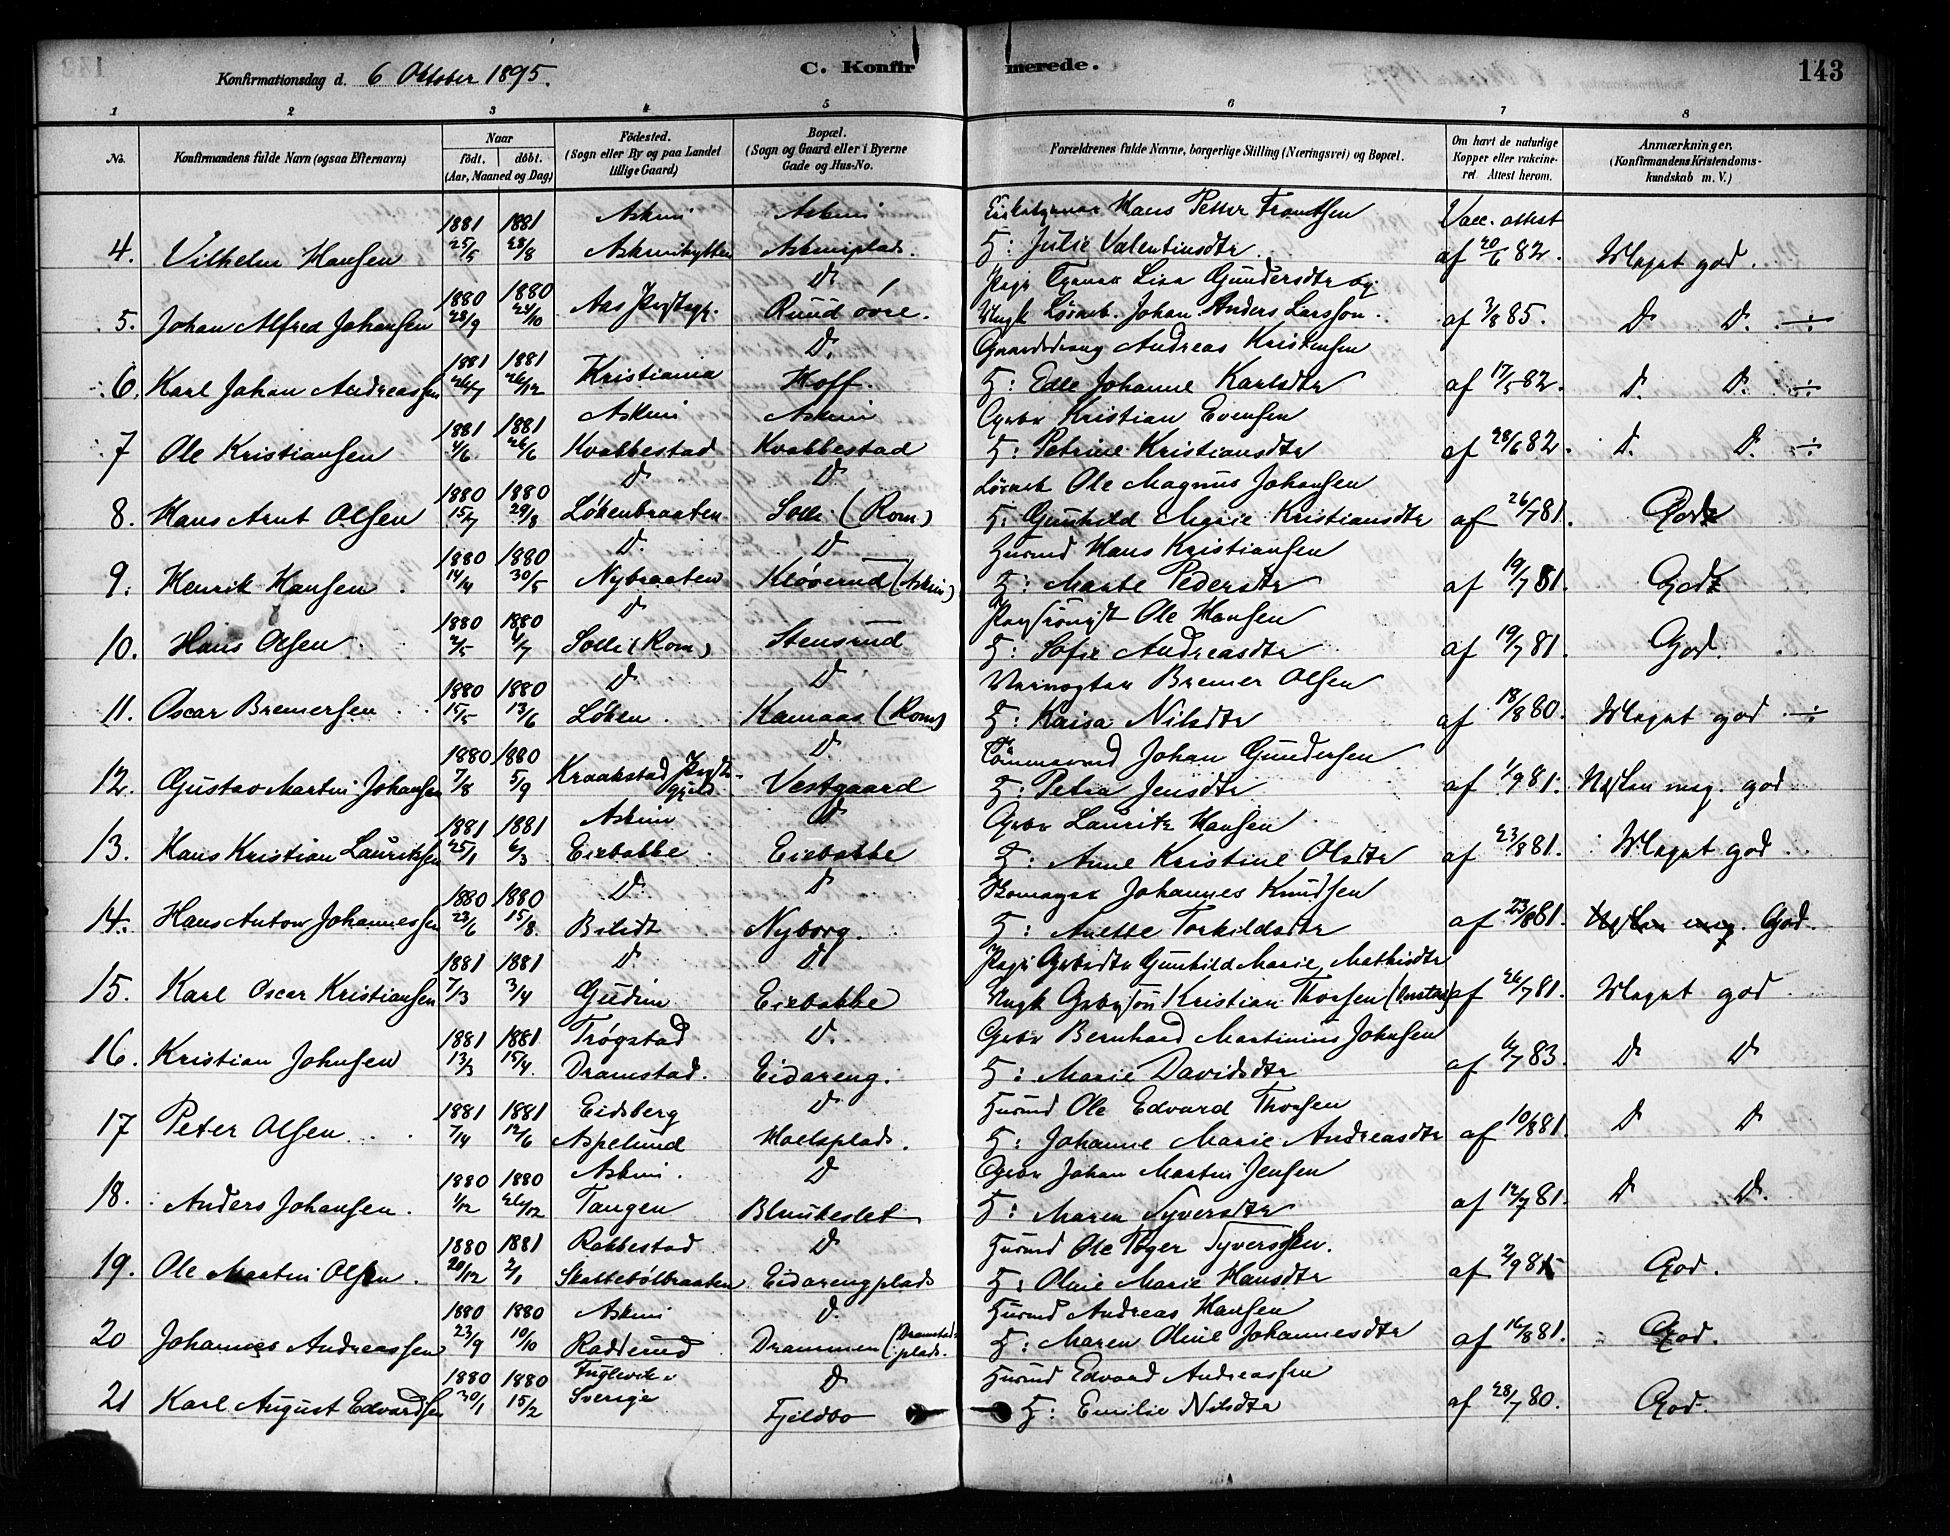 143
Konfirmationsdag d. 6 Oktober 1895.
C. Konfirmerede.
1 2 3 4 5 6 7 8
No. Konfirmandens fulde Navn (ogsaa Efternavn) Naar født. døbt. (Aar, Maaned og Dag) Fødested. (Sogn eller By og paa Landet tillige Gaard) Bopæl. (Sogn og Gaard eller i Byerne Gade og Hus-No. Forældrenes fulde Navne, borgerlige Stilling (Næringsvei) og Bopæl. Om havt de naturlige Kopper eller vakcineret. Attest herom. Anmærkninger. (Konfirmandens Kristendomskundskab m. V.)
1881 1881 Askim Askim Hans Petter Frantsen Vacc. attest
4. Vilhelm Hansen 25/5 28/8 Askimplads. H: Julie Valentinsdtr. af 20/6 82. Meget god.
1880 1880 D. Pige Lisa Gundersdtr og
5. Johan Alfred Johansen 28/9 24/10 Aas Ruud övre. Ungk Johan Anders Larsson. af 3/8 85. D D. ÷
1881 1881 D. Gaardsdreng Andreas Kristensen
6. Karl Johan Andreassen 26/7 26/12 Kristiania Hoff. H: Edle Johanne Karlsdtr af 17/5 82. D. D. ÷
1881 1881 Askim Askim Kristian Evensen
7 Ole Kristiansen 4/6 26/6 Kvabbestad Kvabbestad H: Petrine Kristiansdtr af 28/6 82. D. D. ÷
1880 1880 D D Ole Magnus Johansen
8. Hans Arnt Olsen 15/7 29/8 Løkenbraaten Solli (Rom) H: Gunhild Marie Kristiansdtr af 26/7 81. God
1880 1880 D. D Husmd Hans Kristiansen
9. Henrik Hansen 14/4 30/5 Nybraaten Kløverud (Askim) H: Marte Pedersdtr af 19/7 81. God
1880 1880 D Ole Hansen
10. Hans Olsen 2/5 4/7 Solli (Rom) Stensrud H: Sofie Andreasdtr af 19/7 81. God.
1880 1880 D D Bremer Olsen
11. Oscar Bremersen 15/5 13/6 Løken. Kamaas (Rom) H: Kaisa Nilsdtr af 18/8 80. Meget god ÷
1880 1880 D Tömmermd Johan Gundersen
12. Gustav Martin Johansen 7/8 5/9 Kraakstad Vestgaard H: Petra Jensdtr af 1/9 81. Næsten meg. god
1881 1881 Askim D Lauritz Hansen
13. Hans Kristian Lauritsen 25/1 6/3 Eiebakke Eiebakke H: Anne Kristine Olsdtr af 23/8 81. Meget god.
1880 1880 D. D Skomager Johannes Knudsen
14. Hans Anton Johannessen 23/6 15/8 Bilidt Nyborg. H: Anette Torkildsdtr af 23/8 81. Næsten meg. God.
1881 1881 D. D Pige Gunhild Marie Mathisdtr
15. Karl Oscar Kristiansen 7/3 3/4 Gudim Eiebakke Ungk Kristian Thorsen af 26/7 81. Meget god
1881 1881 Trøgstad D. Bernhard Martinius Johnsen
16. Kristian Johnsen 13/3 15/4. Dramstad. Eidareng. H: Marie Davidsdtr af 6/7 83. D D
1881 1881 Eidsberg D Husmd Ole Edvard Thorsen
17 Peter Olsen 7/4 12/6 Aspelund Hoelsplads. H: Johanne Marie Andreasdtr af 10/8 81. D D
1880 1880 Askim. D Johan Martin Jensen
18. Anders Johansen. 1/12 26/12 Tangen H: Maren Syversdtr af 12/7 81. D D.
1880 1881 Rakkestad D Husmd Ole Syversen.
19. Ole Martin Olsen. 20/12 2/1 Skattebölbraaten Eidarengplads H: Oline Marie Hansdtr af 2/9 85 God.
1880 1880 Askim D. Husmd Andreas Hansen
20 Johannes Andreassen 23/9 10/10 Radderud Drammen (Dramstadplads. H: Maren Oline Johannesdtr af 16/8 81. God.
1880 1880 Fuglevik D Husmd Edvard Andreassen
21 Karl August Edvardsen 30/1 15/2 Sverige Fjeldbo H: Emilie Nilsdtr af 28/7 80. God.